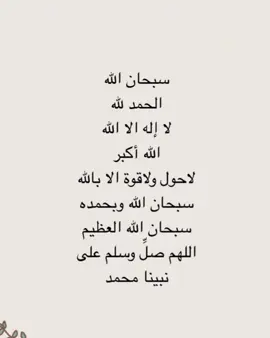 سبحان الله
الحمد لله
لا إله الا الله
الله أكبر
لاحول ولاقوة الا بالله
سبحان الله وبحمده
سبحان الله العظيم
اللهم صلِّ وسلم على
نبينا محمد